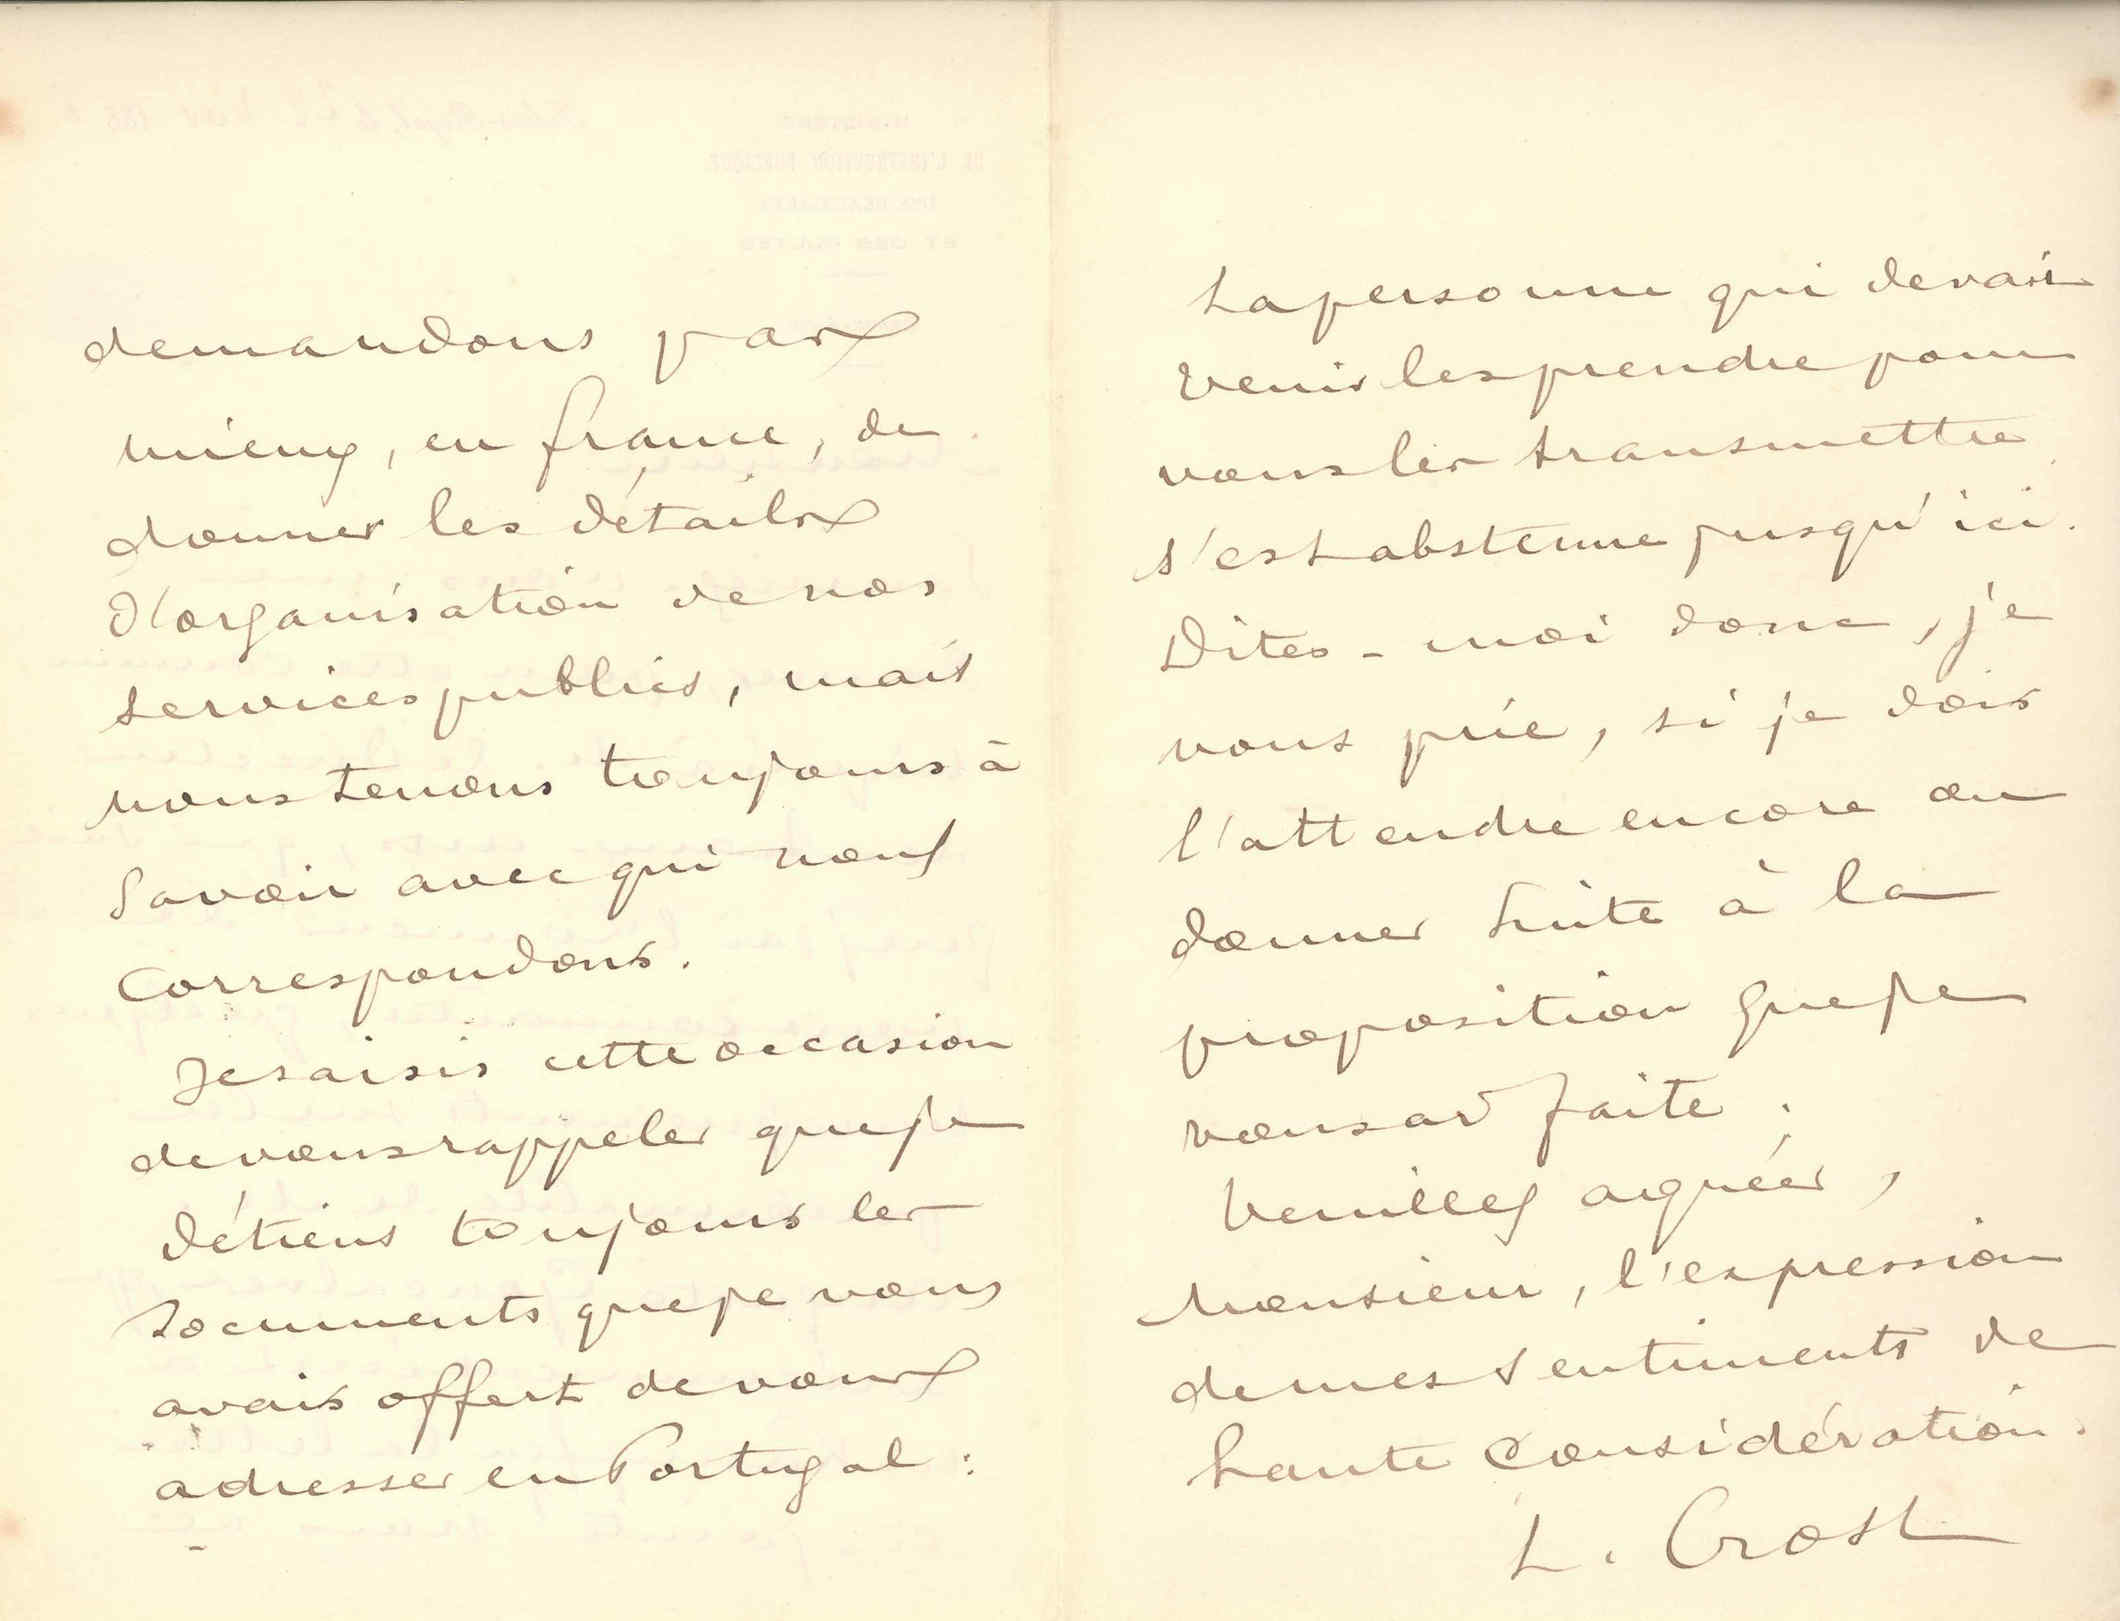 demandons pas
mieux, en france, de
donner les détails
d'organisation de nos
services publics, mais
nous tenons toujours à
savoir avec qui nous
correspondons.
Je saisis cette occasion
de vous rappeler que je
détiens toujours les
documents que je vous
avais offert de vous
adresser en Portugal :
La personne qui devait
venir les prendre pour
vous les transmettre
s'est abstenue jusqu'ici.
Dites-moi donc, je
vous prie, si je dois
l'attendre encore ou
donner suite à la
proposition que je
vous ai faite.
Veuillez agréer,
Monsieur, l'expression
de mes sentiments de
haute considération.
L. Crost